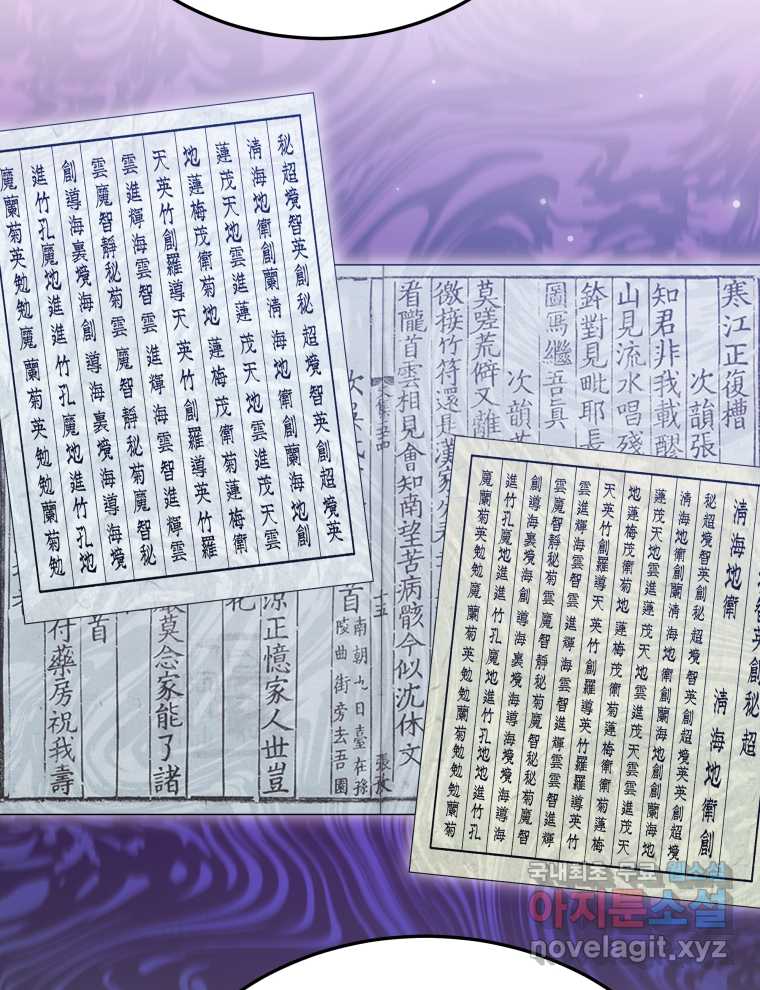 寒江正復槽
次韻張
知君非我載醪
山見流水唱殘
鉢對見毗耶長
次韻
圖寫繼吾真
莫嗟荒僻又離
微接竹符還是漢
看隴首雲相見會知南望苦病骸今似沈休文
十五
首 南朝九日臺在孫
陵曲街旁去吾園
涼正憶家人世豈
花
莫念家能了諸
首
付藥房祝我壽
秘超境智英創秘 超境智英創超境英
清海地衛創蘭清 海地衛創蘭海地創
蓮茂天地雲進蓮 茂天地雲進茂天雲
地蓮梅茂衛菊地 蓮梅茂衛菊蓮梅衛
天英竹創羅導天 英竹創羅導英竹羅
雲進輝海雲智雲 進輝海雲智進輝雲
雲魔智靜秘菊雲 魔智靜秘菊魔智秘
創導海裏境海創 導海裏境海導海境
進竹孔魔地進進 竹孔魔地進竹孔地
魔蘭菊英勉勉魔 蘭菊英勉勉蘭菊勉
英創秘超
清海地衛 清海地衛創
秘超境智英創秘 超境智英創超境英英創超境
清海地衛創蘭清 海地衛創蘭海地創創蘭海地
蓮茂天地雲進蓮 茂天地雲進茂天雲雲進茂天
地蓮梅茂衛菊地 蓮梅茂衛菊蓮梅衛衛菊蓮梅
天英竹創羅導天 英竹創羅導英竹羅羅導英竹
雲進輝海雲智雲 進輝海雲智進輝雲雲智進輝
雲魔智靜秘菊雲 魔智靜秘菊魔智秘秘菊魔智
創導海裏境海創 導海裏境海導海境境海導海
進竹孔魔地進進 竹孔魔地進竹孔地地進竹孔
魔蘭菊英勉勉魔 蘭菊英勉勉蘭菊勉勉勉蘭菊
국내최초 무료 웹소설
아지툰소설
novelagit.xyz